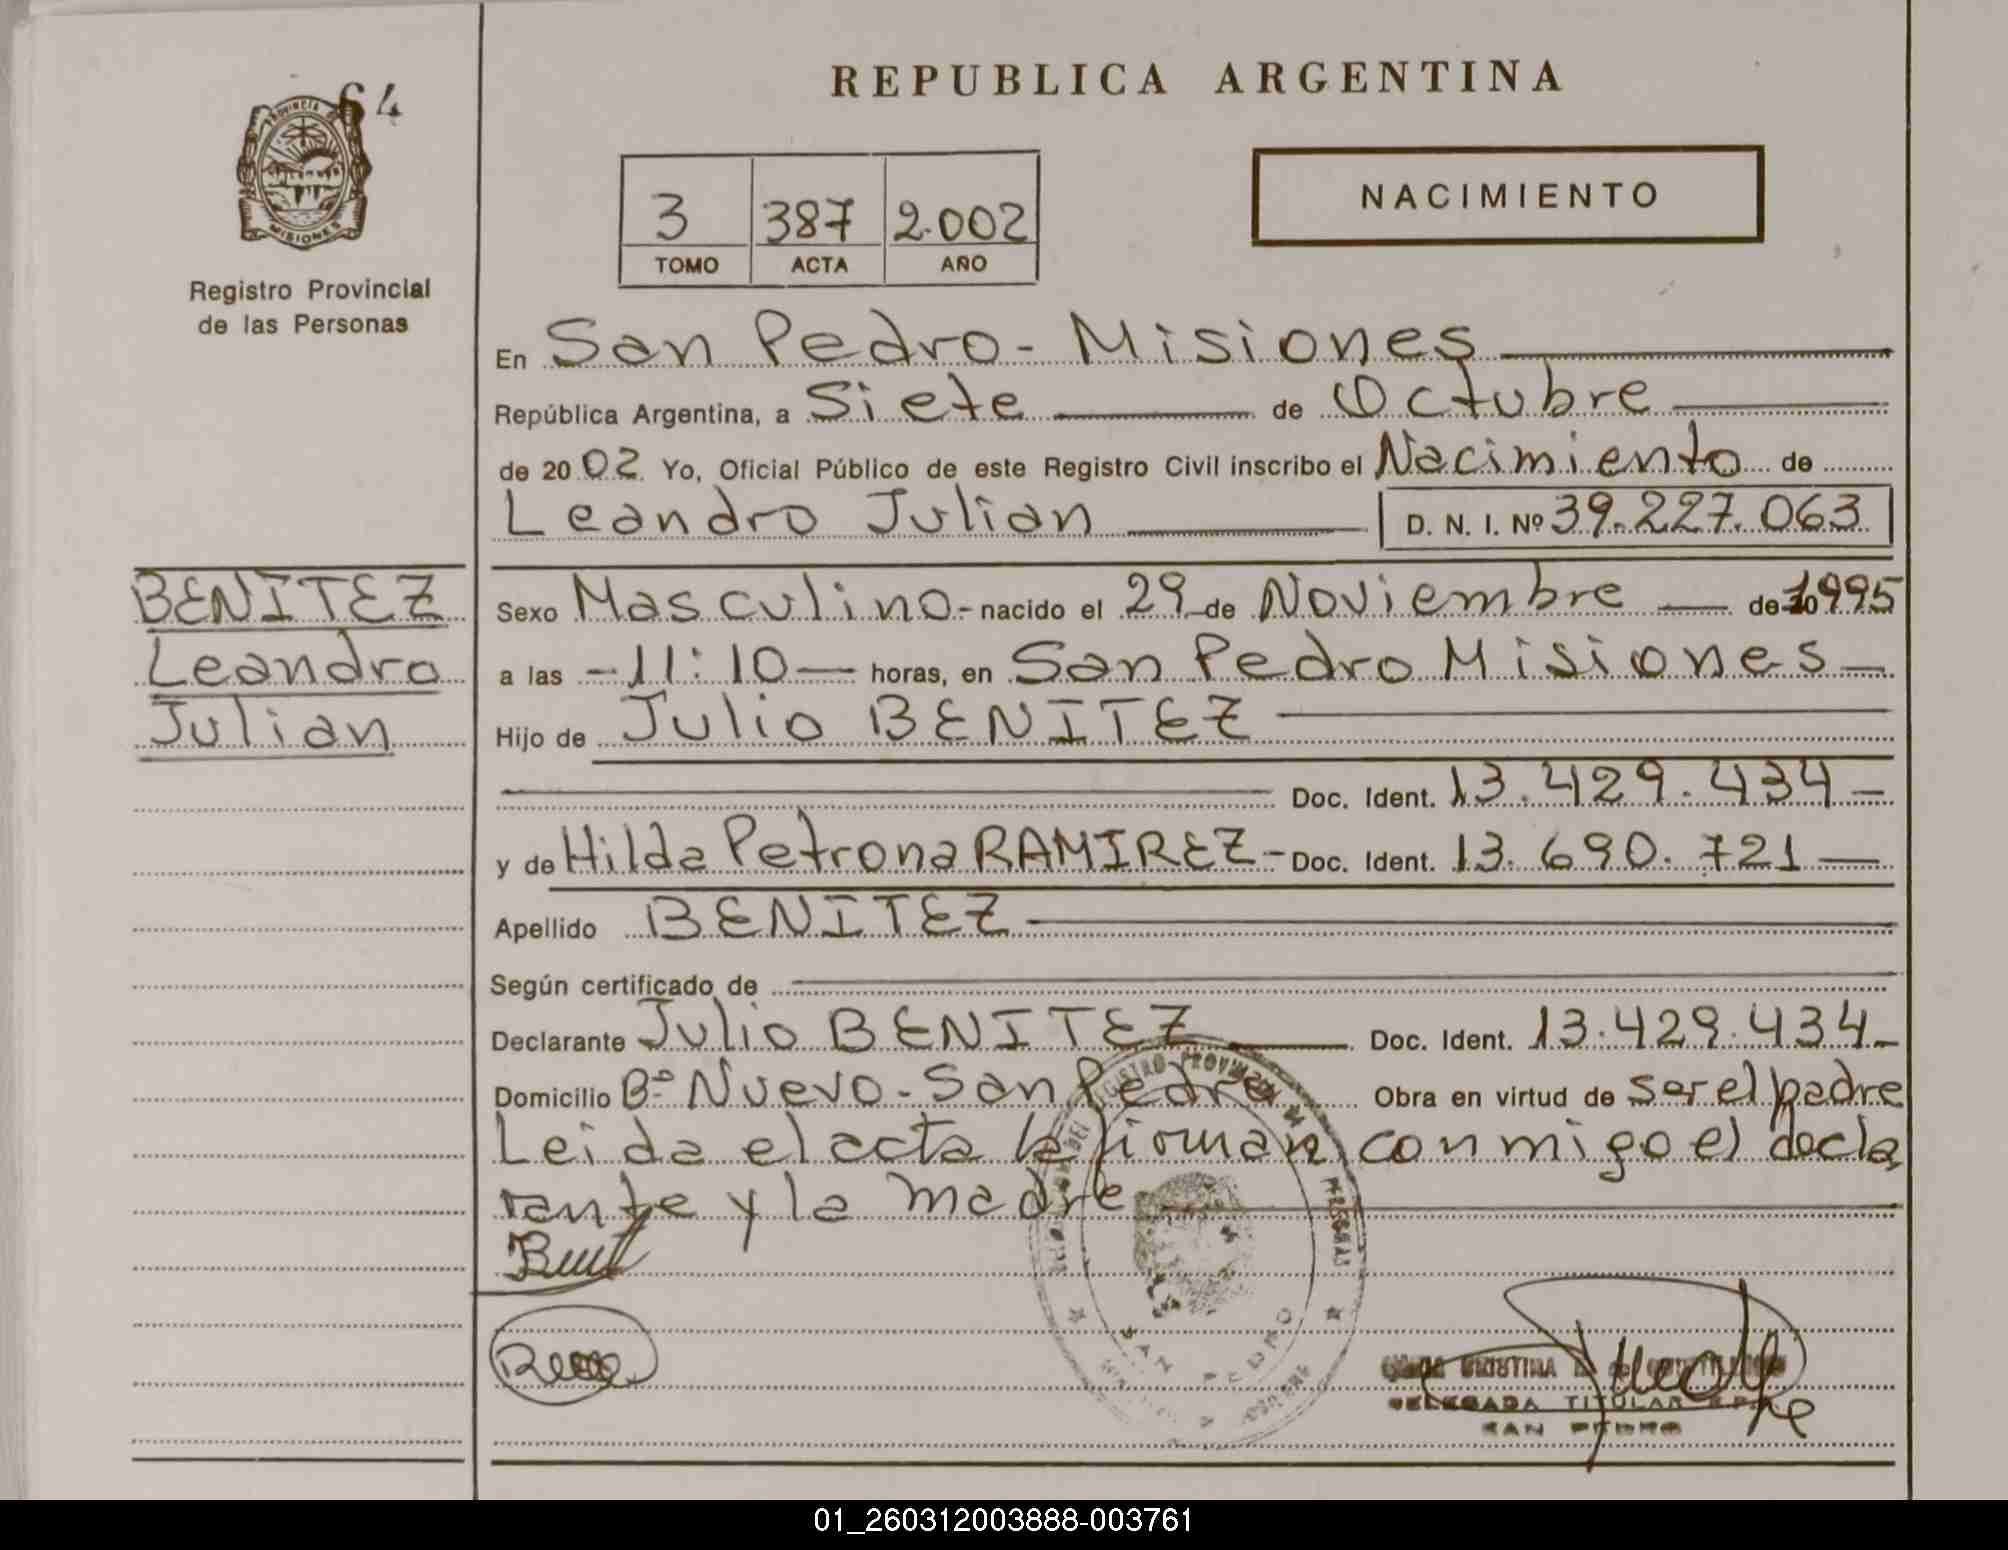 64
PROVINCIA DE
MISIONES
Registro Provincial
de las Personas
REPUBLICA ARGENTINA
3 387 2.002
TOMO ACTA AÑO
NACIMIENTO
En San Pedro - Misiones
República Argentina, a Siete de Octubre
de 20 02 Yo, Oficial Público de este Registro Civil inscribo el Nacimiento de
Leandro Julian D. N. I. Nº 39.227.063
BENITEZ
Leandro
Julian
Sexo Masculino - nacido el 29 de Noviembre de 1995
a las - 11:10 - horas, en San Pedro Misiones
Hijo de Julio BENITEZ
Doc. Ident. 13.429.434 -
y de Hilda Petrona RAMIREZ - Doc. Ident. 13.690.721
Apellido BENITEZ
Según certificado de
Declarante Julio BENITEZ Doc. Ident. 13.429.434 -
Domicilio Bº Nuevo - San Pedro Obra en virtud de ser el padre
Leida el acta la firman conmigo el decla
rante y la madre
CRISTINA
DELEGADA TITULAR R.P.P.
SAN PEDRO
SAN PEDRO
01_260312003888-003761